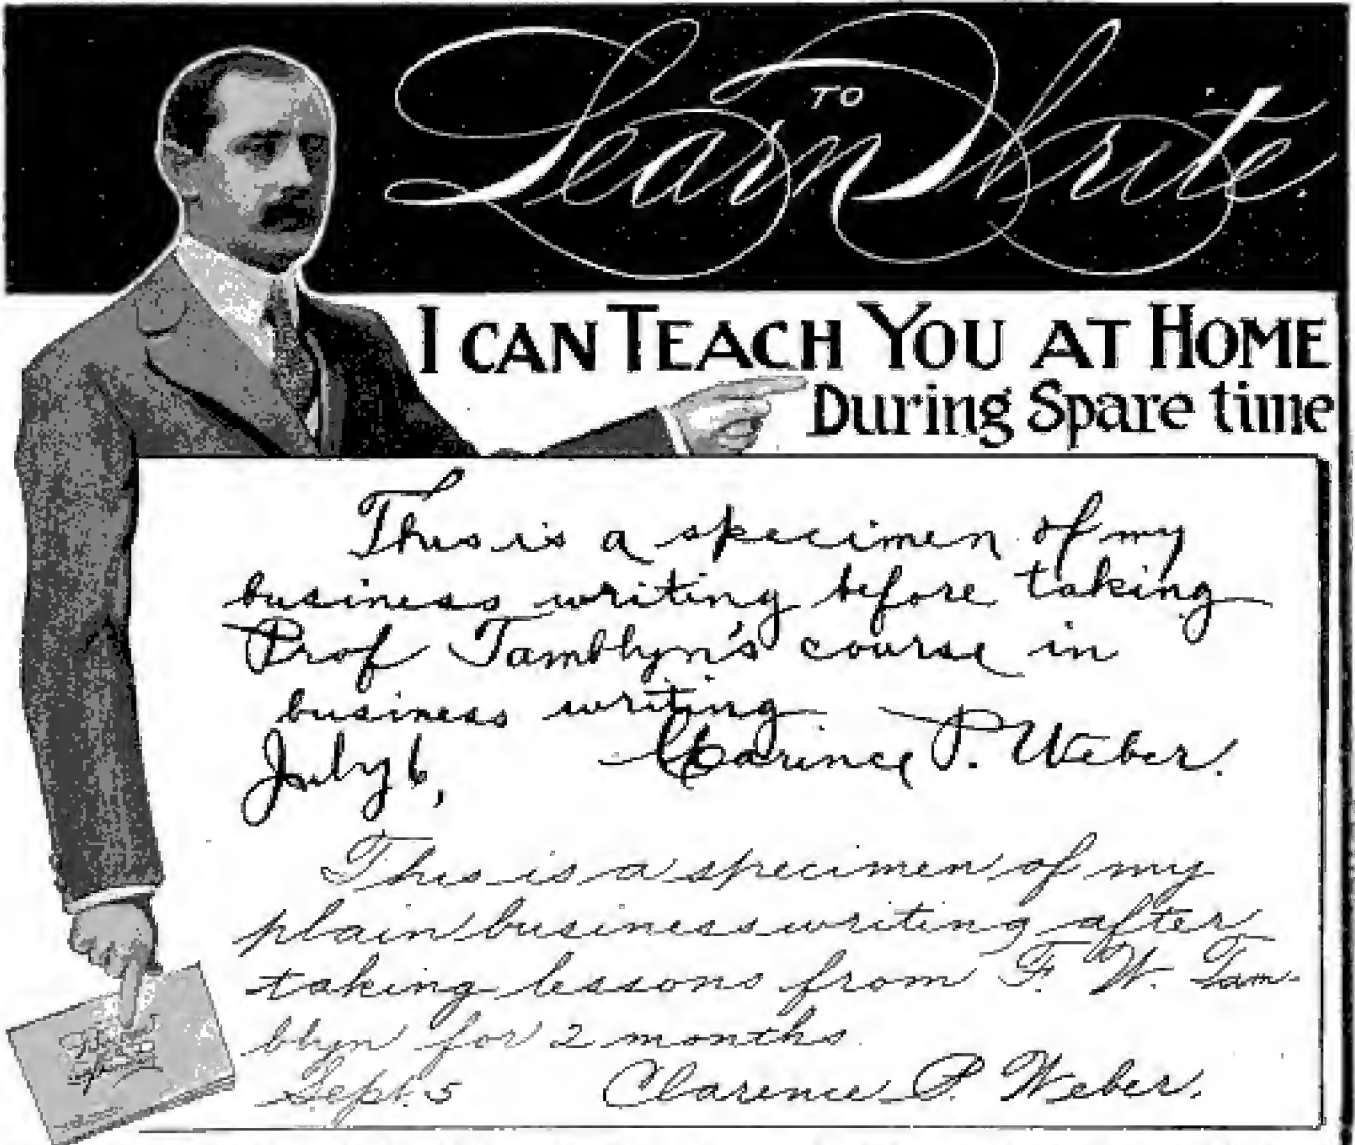 Learn to Write.
I CAN TEACH YOU AT HOME
During Spare time
This is a specimen of my
business writing before taking
Prof Tamblyn's course in
business writing.
Clarence P. Weber.
July 6,
This is a specimen of my
plain business writing after
taking lessons from F. W. Tam-
blyn for 2 months.
Sept. 5 Clarence P. Weber.